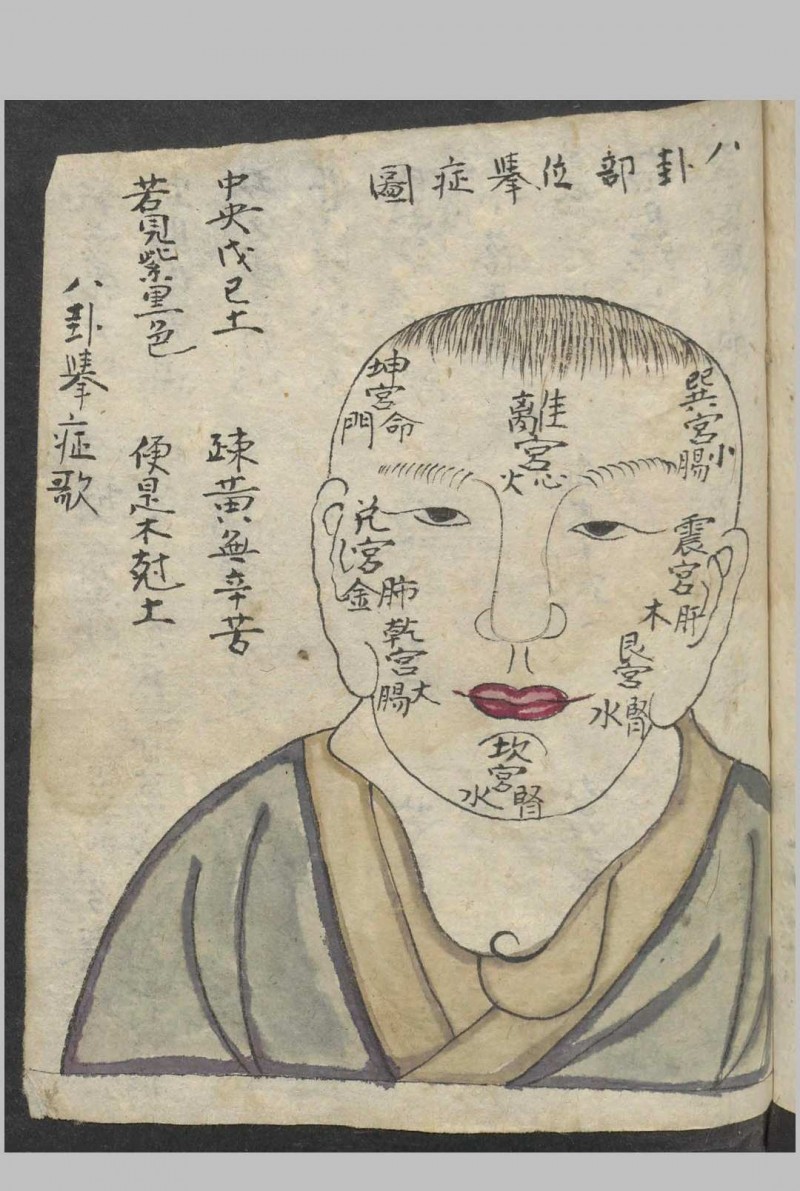 八卦部位舉症圖
巽宮小腸
離宮心火
坤宮命門
震宮肝木
兌宮肺金
艮宮腎水
乾宮大腸
坎宮腎水
中央戊己土 疎黃無辛苦
若見紫黑色 便是木尅土
八卦舉症歌